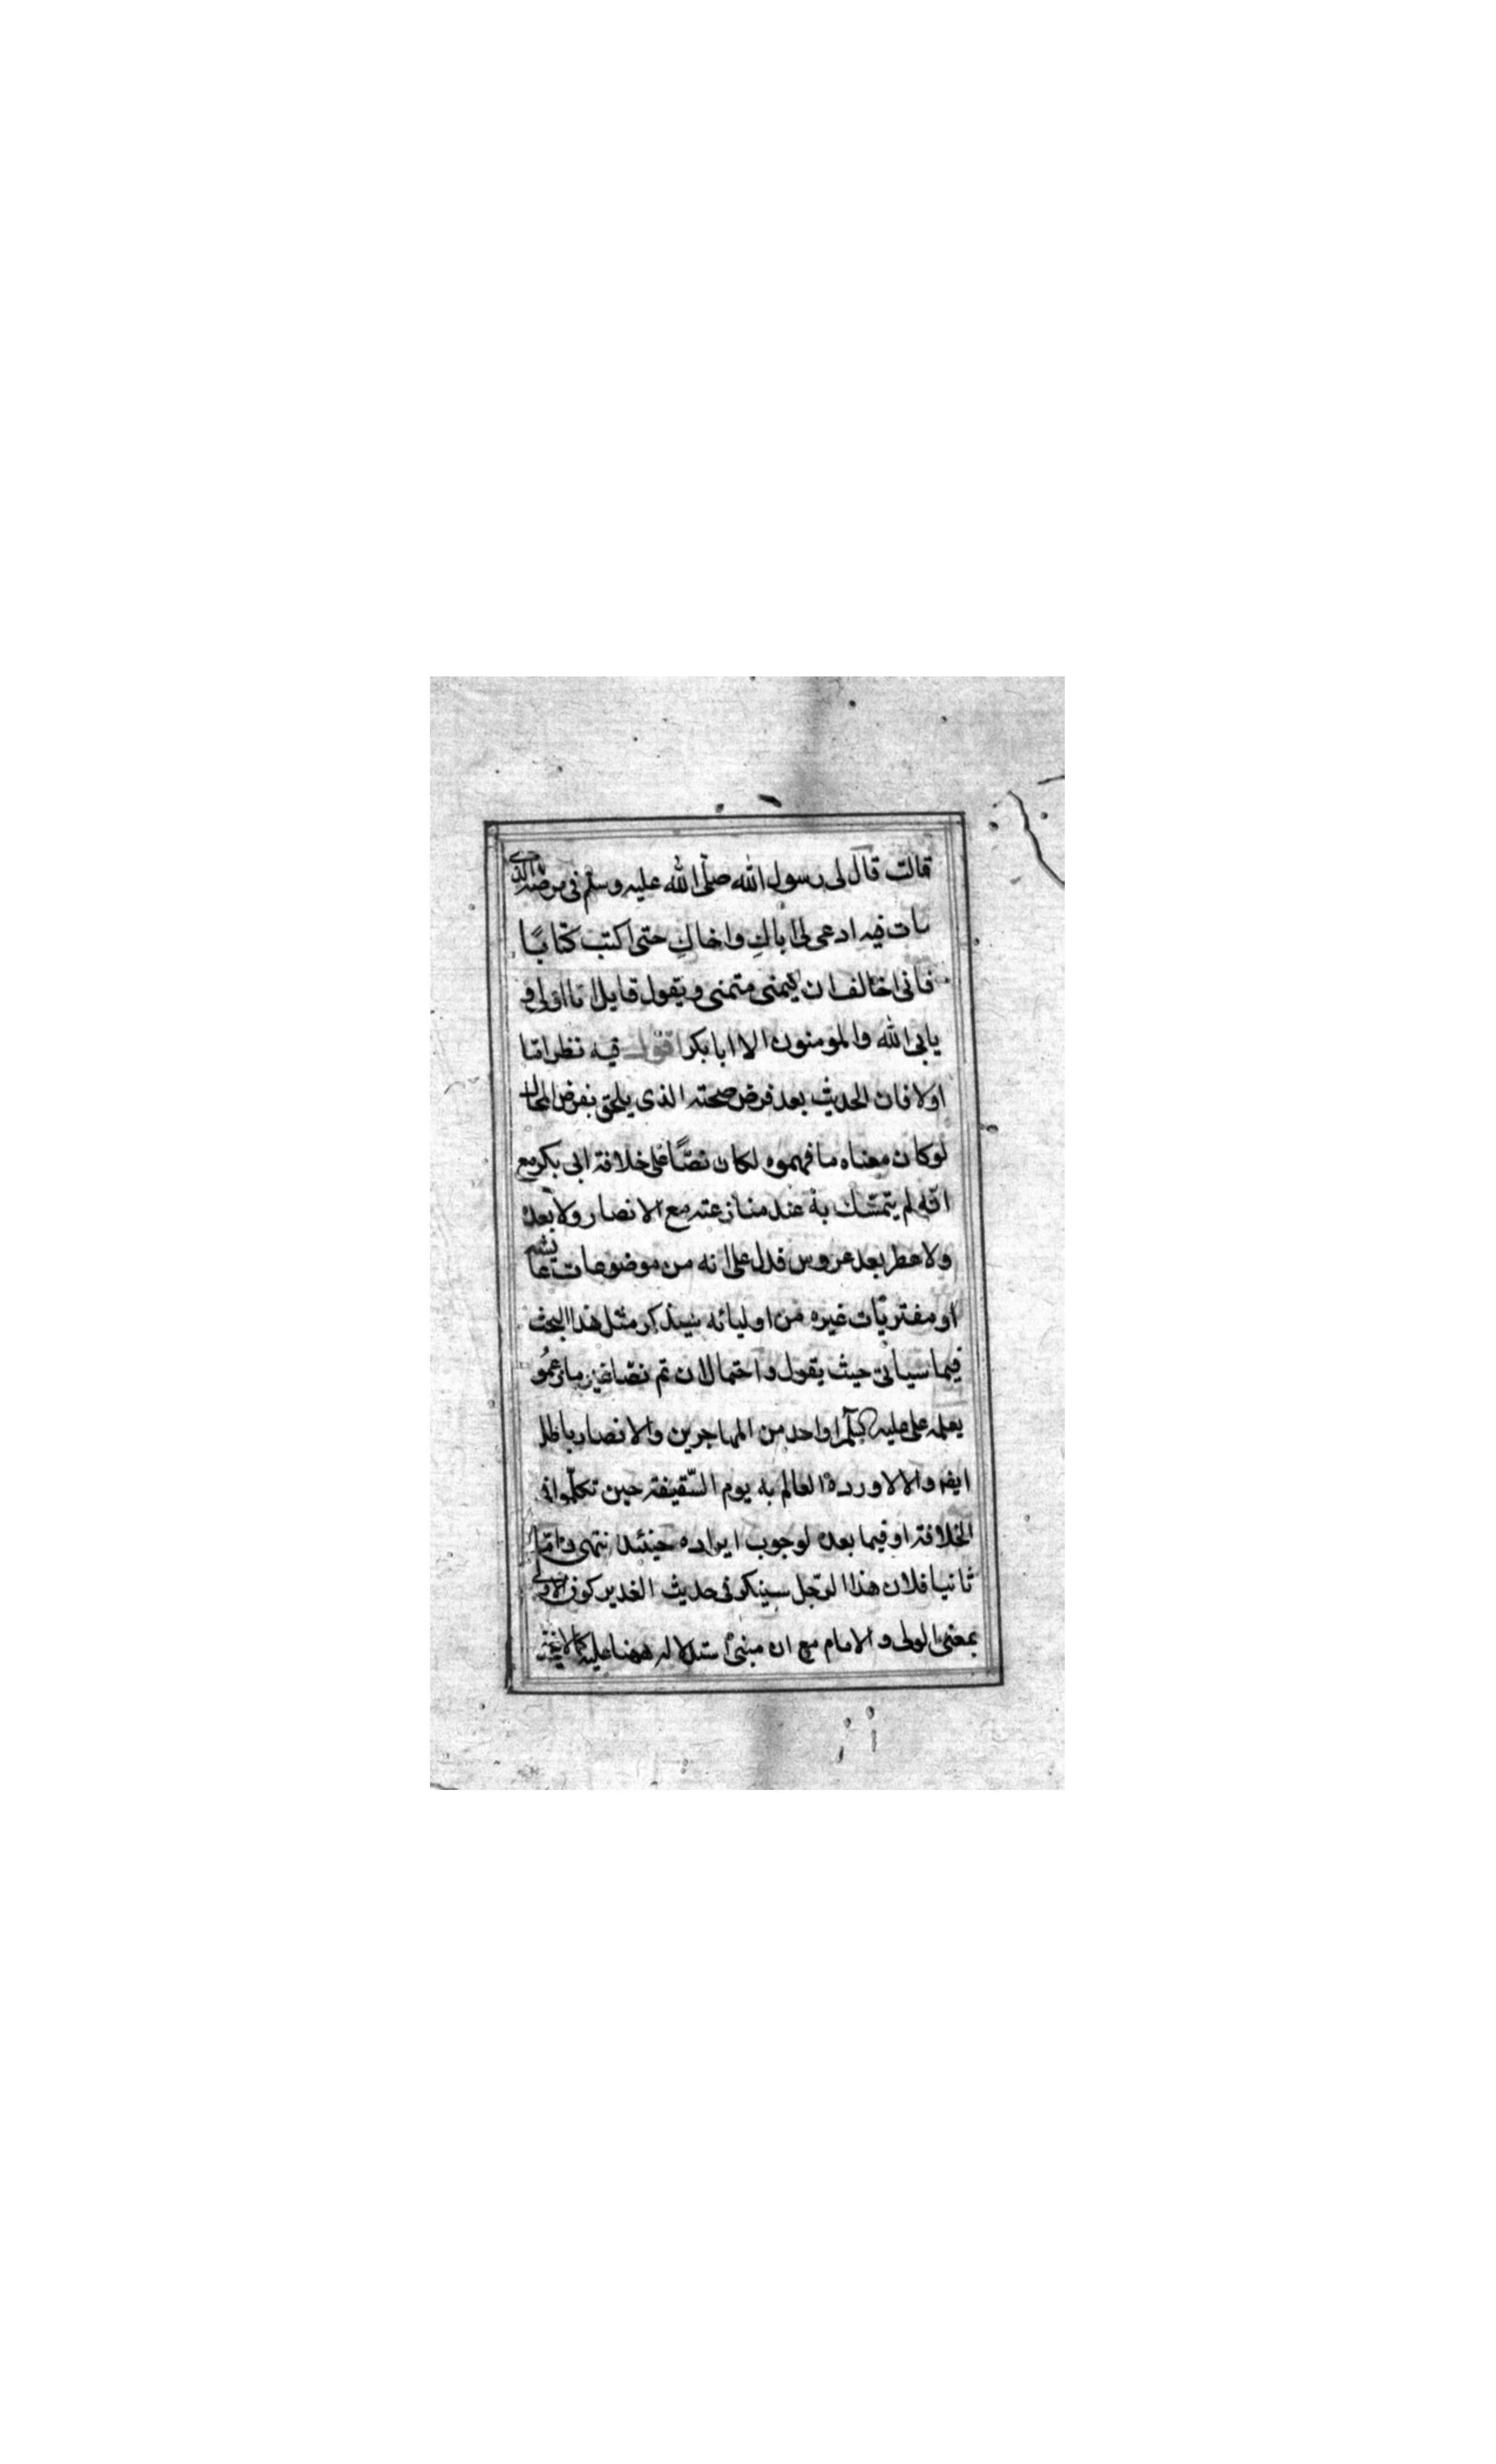 قالت قال لى رسول الله صلّى الله عليه وسلّم فى مرضه الذى
مات فيه ادعى لى اباكِ واخاكِ حتى اكتب كتابًا
فانى اخاف ان يتمنى متمنى ويقول قايل انا اولى و
يابى الله والمومنون الا ابا بكر اقول فيه نظر امّا
اولا فان الحديث بعد فرض صحته الذى يلحق بفرض المحال
لوكان معناه ما فهموه لكان نصًّا على خلافة ابى بكر مع
انّه لم يتمسّك به عند منازعته مع الانصار ولا بعده
ولا عطر بعد عروس فدل على انه من موضوعات عايشه
او مفتريّات غيره من اوليائه سيذكر مثل هذا البحث
فيما سياتى حيث يقول واحتمال ان ثم نصّا غير ما زعموه
يعلمه على عليه او احد من المهاجرين والانصار باطل
ايضا والا لاورده العالم به يوم السّقيفة حين تكلّموا فى
الخلافة او فيما بعده لوجوب ايراده حينئذ انتهى وامّا
ثانيا فلان هذا الرّجل سينكر فى حديث الغدير كون الاولى
بمعنى الولى والامام مع ان مبنى استدلاله ههنا عليه كما لا يخفى